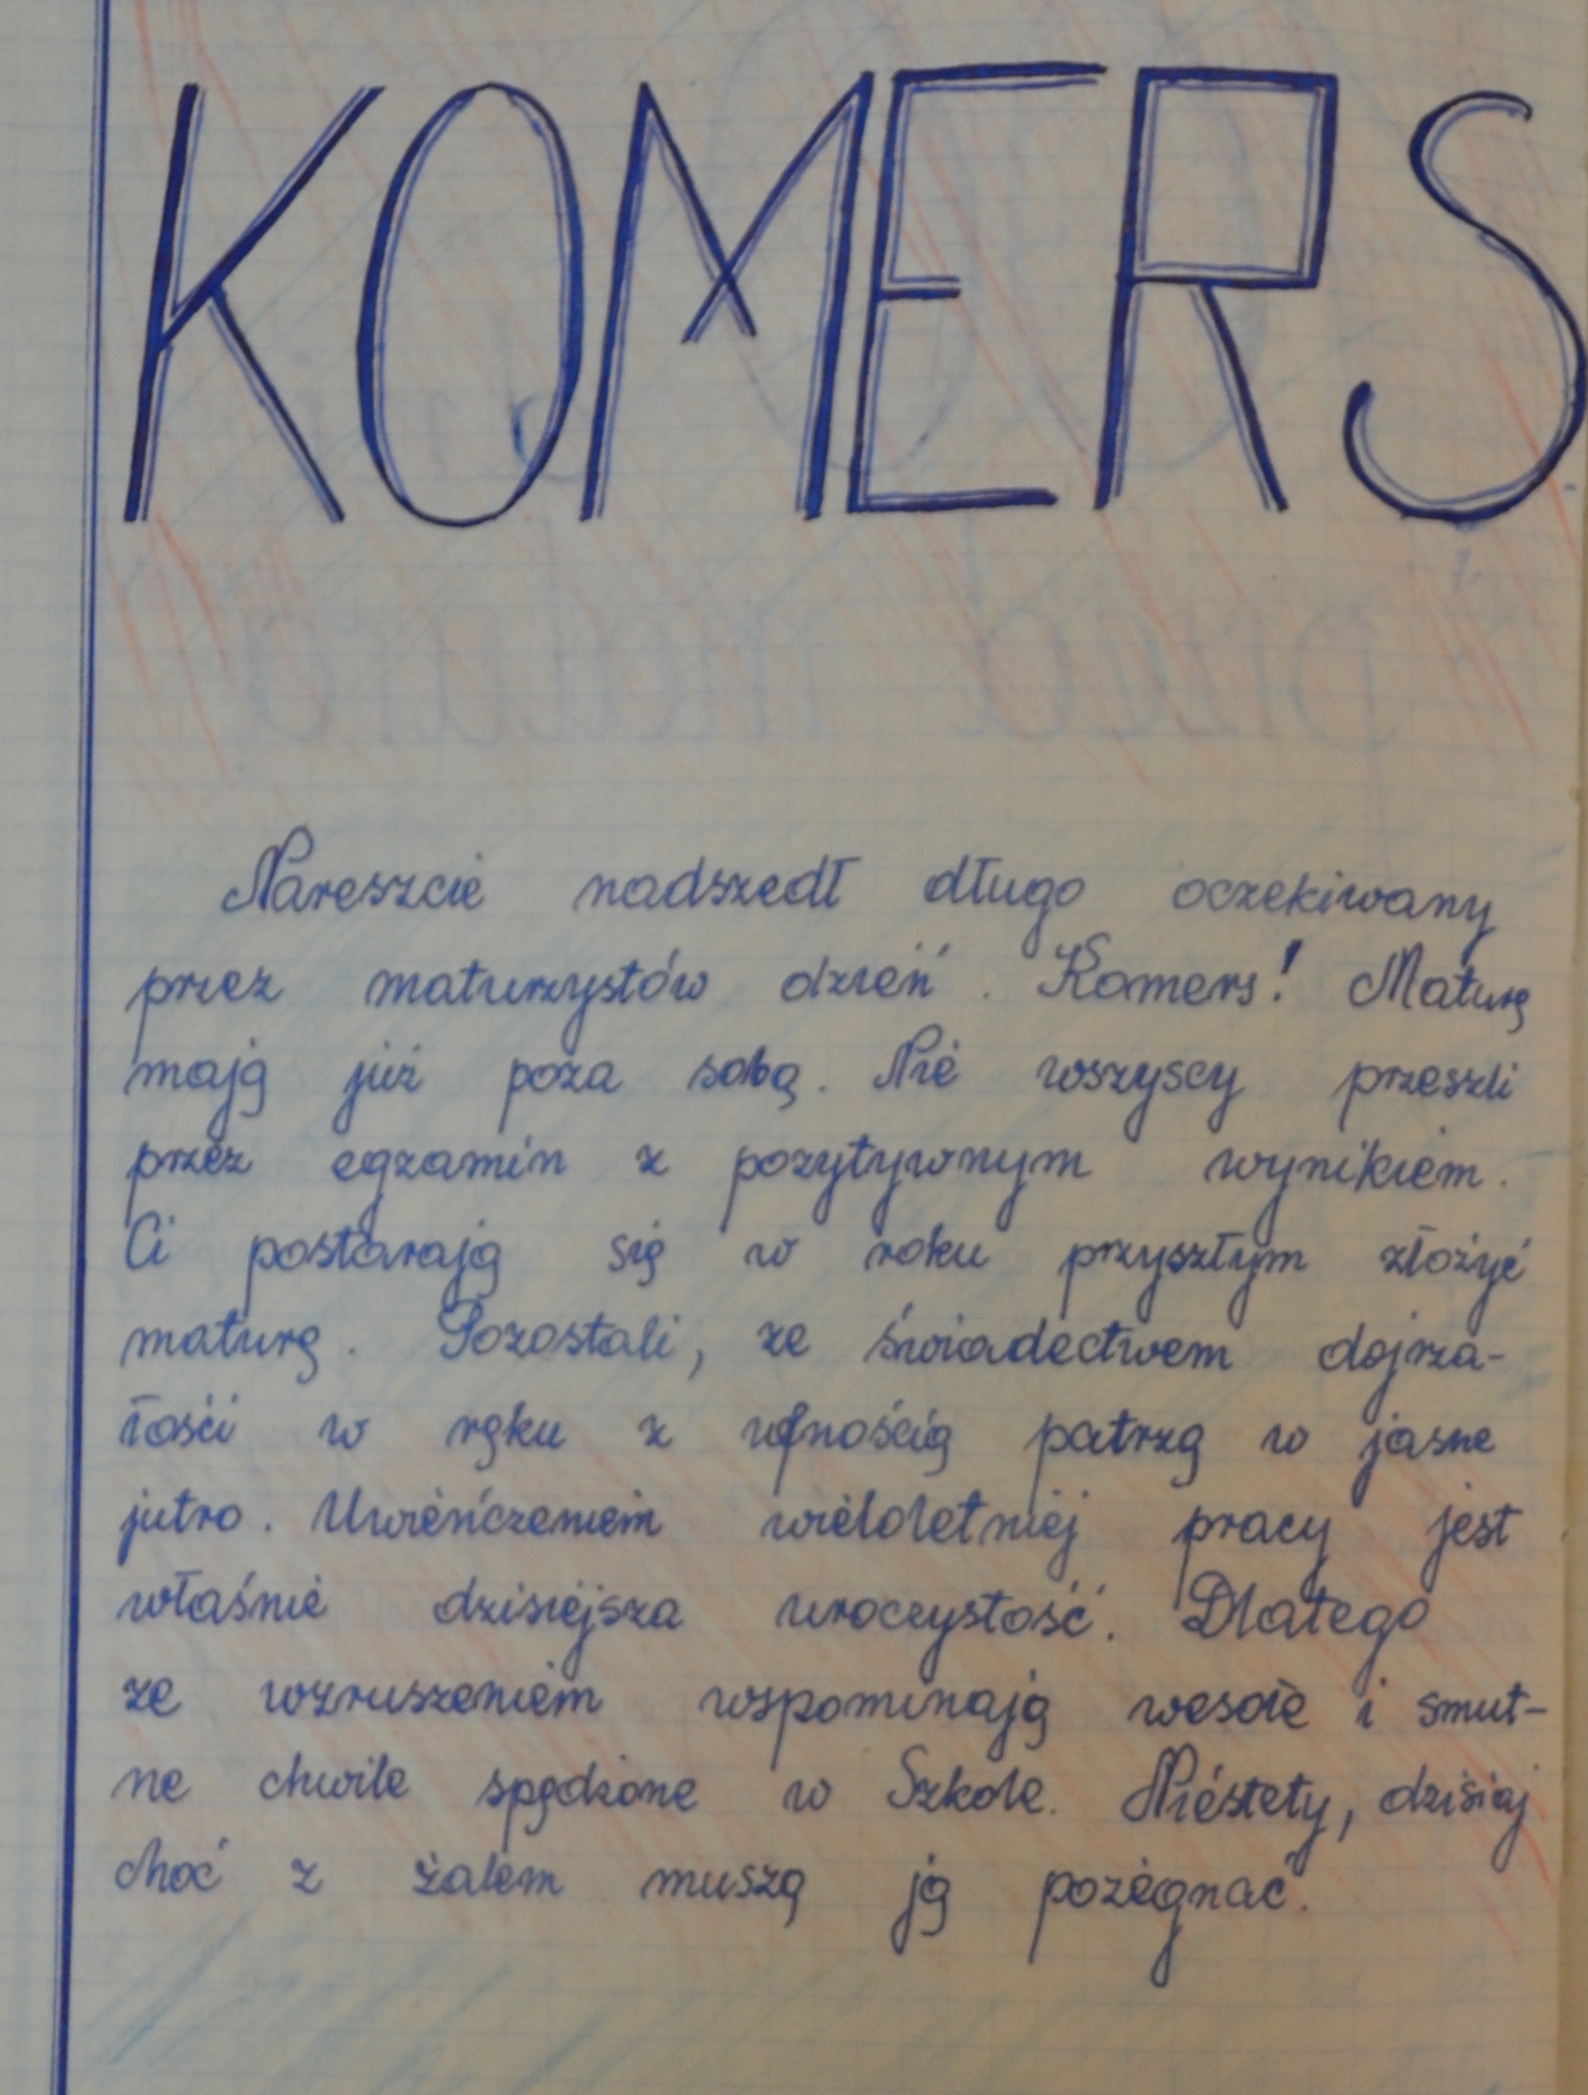 KOMERS
Nareszcie nadszedł długo oczekiwany
przez maturzystów dzień. Komers! Maturę
mają już poza sobą. Nie wszyscy przeszli
przez egzamin z pozytywnym wynikiem.
Ci postarają się w roku przyszłym złożyć
maturę. Pozostali, ze świadectwem dojrza-
łości w ręku z ufnością patrzą w jasne
jutro. Uwieńczeniem wieloletniej pracy jest
właśnie dzisiejsza uroczystość. Dlatego
ze wzruszeniem wspominają wesołe i smut-
ne chwile spędzone w Szkole. Niestety, dzisiaj
choć z żalem muszą ją pożegnać.